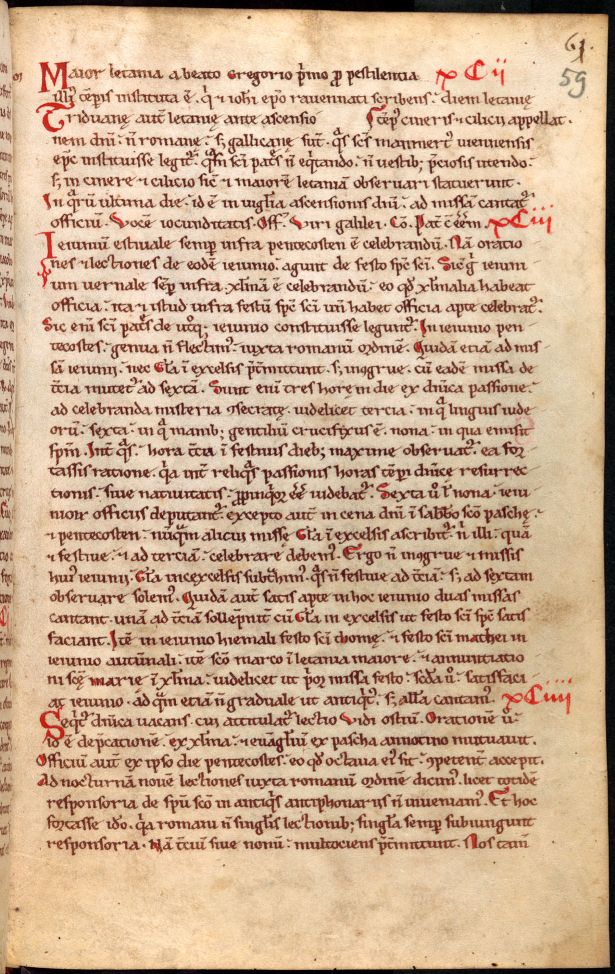 61
59
Maior letania a beato Gregorio pͥmo ꝓ pestilentia xCii
illiꝰ tēpis instituta ē. qͥ ⁊ ioh̄i epō rauennati scribens. diem letanię
Triduanę aut̄ letanię ante ascensio cineris ⁊ cilicii appellat.
nem dn̄i. n̄ romanę. sꝫ gallicanę sunt. qͣs sc̄s mammertꝰ uiennensis
ep̄c instituisse legit᷑. qͣsi sc̄i pat̄s n̄ eqͥtando. n̄ uestibꝫ p̄ciosis utendo.
sꝫ in cinere ⁊ cilicio sic̄ ⁊ maiorē letaniā obseruari statuerunt.
In qͣrū ultima die. id ē in uiglīa ascensionis dn̄i. ad missam cantat᷑
officiū. Vocē iocunditatis. Off. Viri galilei. Co. Pat̄ c̄ eēm. xCiii
Ieiuniū estiuale semꝑ infra pentecosten ē celebrandū. Nā oratio
nes ⁊ lectiones de eodē ieiunio. agunt de festo sp̄c sc̄i. Sic̄ gͦ ieiuni
um uernale sēꝑ infra xl̄mā ē celebrandū. eo qd̄ xl̄malia habeat
officia. ita ⁊ istud infra festū sp̄c sc̄i un̄ habet officia apte celebrat᷑.
Sic eni sc̄i pat̄s de utͦqꝫ ieiunio constituisse legunt᷑. In ieiunio pen
tecostes. genua n̄ flectimꝰ. iuxta romanū ordinē. Quidā etiā ad mis
sā ieiunii. nec Gl̄a ī excelsis p̄mittunt. sꝫ incongrue. cū eadē missa de
t̄cia mutet᷑ ad sextā. Sunt eni tres horę in die ex dn̄ica passione.
ad celebranda misteria ꝯsecratę. uidelicet tercia. in qͣ linguis iude
orū. sexta. in qͣ manibꝫ gentiliū crucifixus ē. nona. in qua emisit
sp̄m. Int̄ qͣs. hora t̄cia ī festiuis diebꝫ maxime obseruat᷑. ea for
tassis ratione. qͥa int̄ reliqͣs passionis horas tēpi dn̄icę resurrec
tionis. siue natiuitatis. ꝓpinqͥor eē uidebat᷑. Sexta uͦ l̄ nona. ieiu
nior officiis deputant᷑. excepto aut̄ in cena dn̄i. ī sabbō scō paschę.
⁊ pentecosten. nūqͣm alicui missę Gl̄a ī excelsis ascribit᷑. n̄ illi. quā
⁊ festiue. ⁊ ad terciā. celebrare debemꝰ. Ergo n̄ incongrue ⁊ missis
huiꝰ ieiunii. Gl̄a in excelsis subt̄himꝰ. qͣs n̄ festiue ad t̄ciā. sꝫ ad sextam
obseruare solemꝰ. Quidā aut̄ satis apte in hoc ieiunio duas missas
cantant. unā ad t̄ciā sollēpnit̄ cū Gl̄a in excelsis ut festo sc̄i sp̄c satis
faciant. Itē in ieiunio hiemali festo sc̄i thomę. ⁊ festo sc̄i mathei in
ieiunio autūnali. itē scō marco ī letania maiore. ⁊ annuntiatio
ni scę marie ī xl̄ma. uidelicet ut pͥor missa festo. scd̄a uͦ. satisfaci
at ieiunio. ad qͣm etiā n̄ graduale ut antiqͥt᷑. sꝫ all̄a cantamꝰ. xCiiii
Seqͥt᷑ dn̄ica uacans. cui attitulat᷑ lectio Vidi ostiū. Orationē uͦ
id ē dep̄cationē. ex xl̄ma. ⁊ euāgl̄ium ex pascha annotino mutuauit.
Officiū aut̄ ex ipso die pentecostes. eo qd̄ octaua eiꝰ sit. ꝯpetent̄ accepit.
Ad nocturnā nouē lectiones iuxta romanū ordinē dicimꝰ. licet totidē
responsoria de sp̄u scō in antiqͥs antiphonariis n̄ inueniamꝰ. Et hoc
fortasse idͦo. qͥa romani n̄ singlis lectionibꝫ singla semꝑ subiungunt
responsoria. Nā t̄ciū siue nonū. multociens p̄tmittunt. Nos tam̄